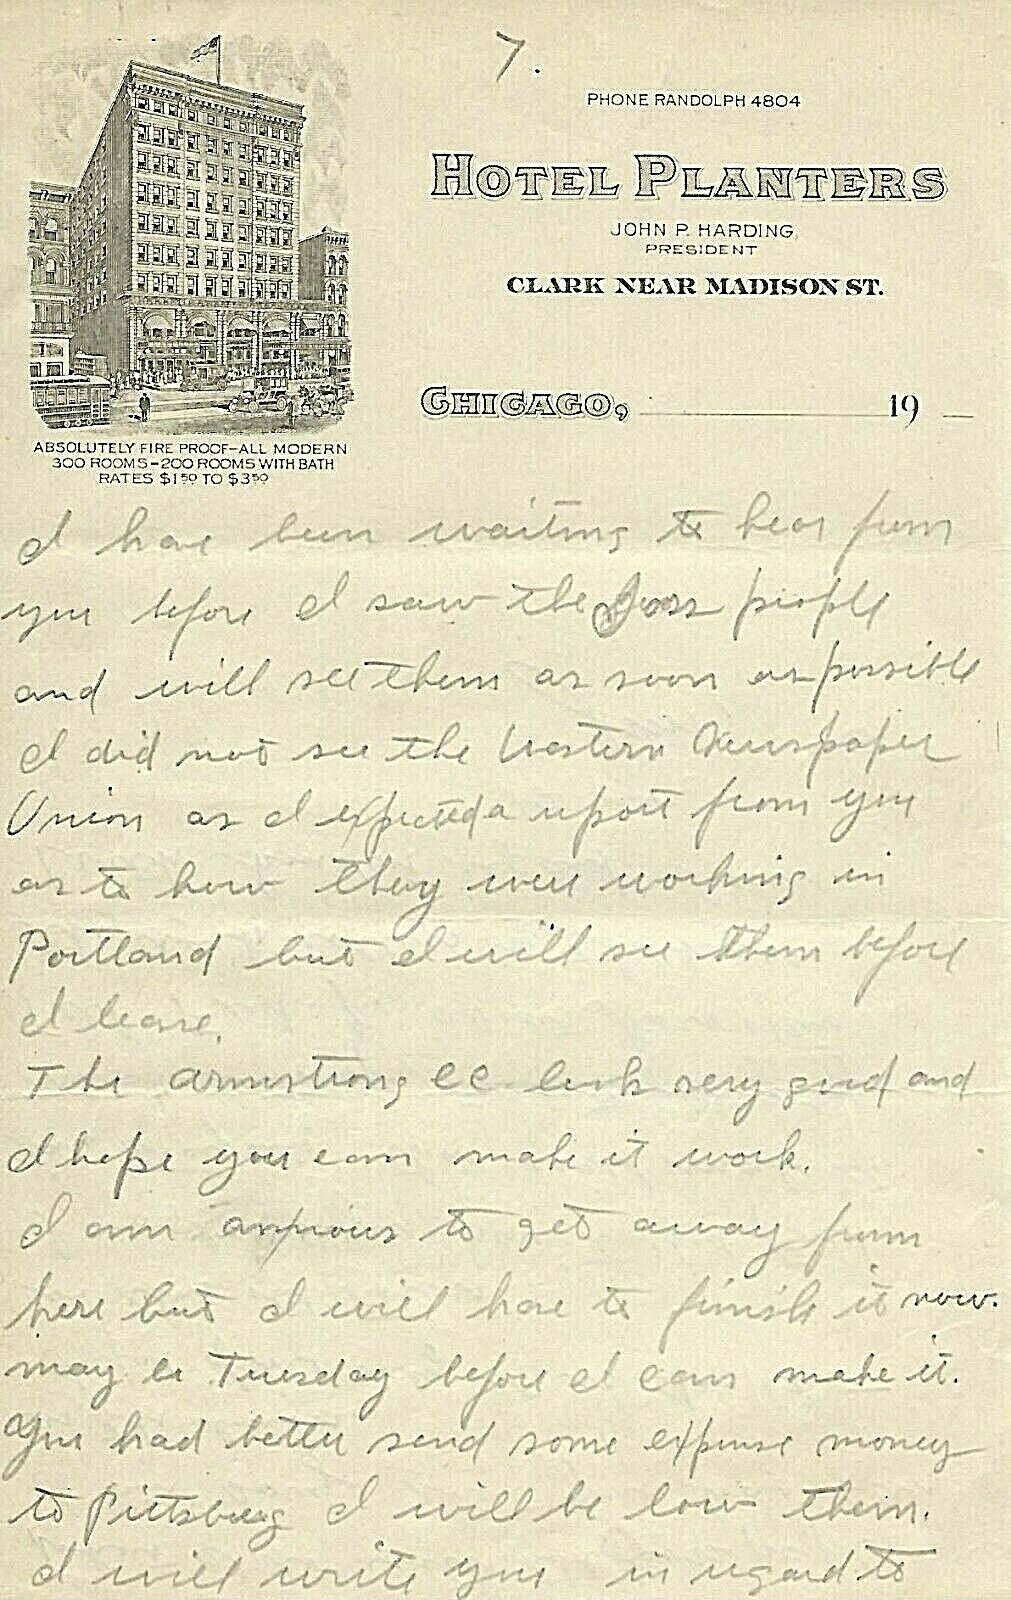 7.
PHONE RANDOLPH 4804
HOTEL PLANTERS
JOHN P. HARDING,
PRESIDENT
CLARK NEAR MADISON ST.
CHICAGO, 19
ABSOLUTELY FIRE PROOF-ALL MODERN
300 ROOMS-200 ROOMS WITH BATH
RATES $1.50 TO $3.50
I have been waiting to hear from
you before I saw the people
and will see them as soon as possible
I did not see the Western Newspaper
Union as I expected a report from you
as to how they were working in
Portland but I will see them before
I leave.
The Armstrong CC look very good and
I hope you can make it work.
I am anxious to get away from
here but I will have to finish it now.
may be Tuesday before I can make it.
You had better send some expense money
to Pittsburg I will be low then.
I will write you in regard to